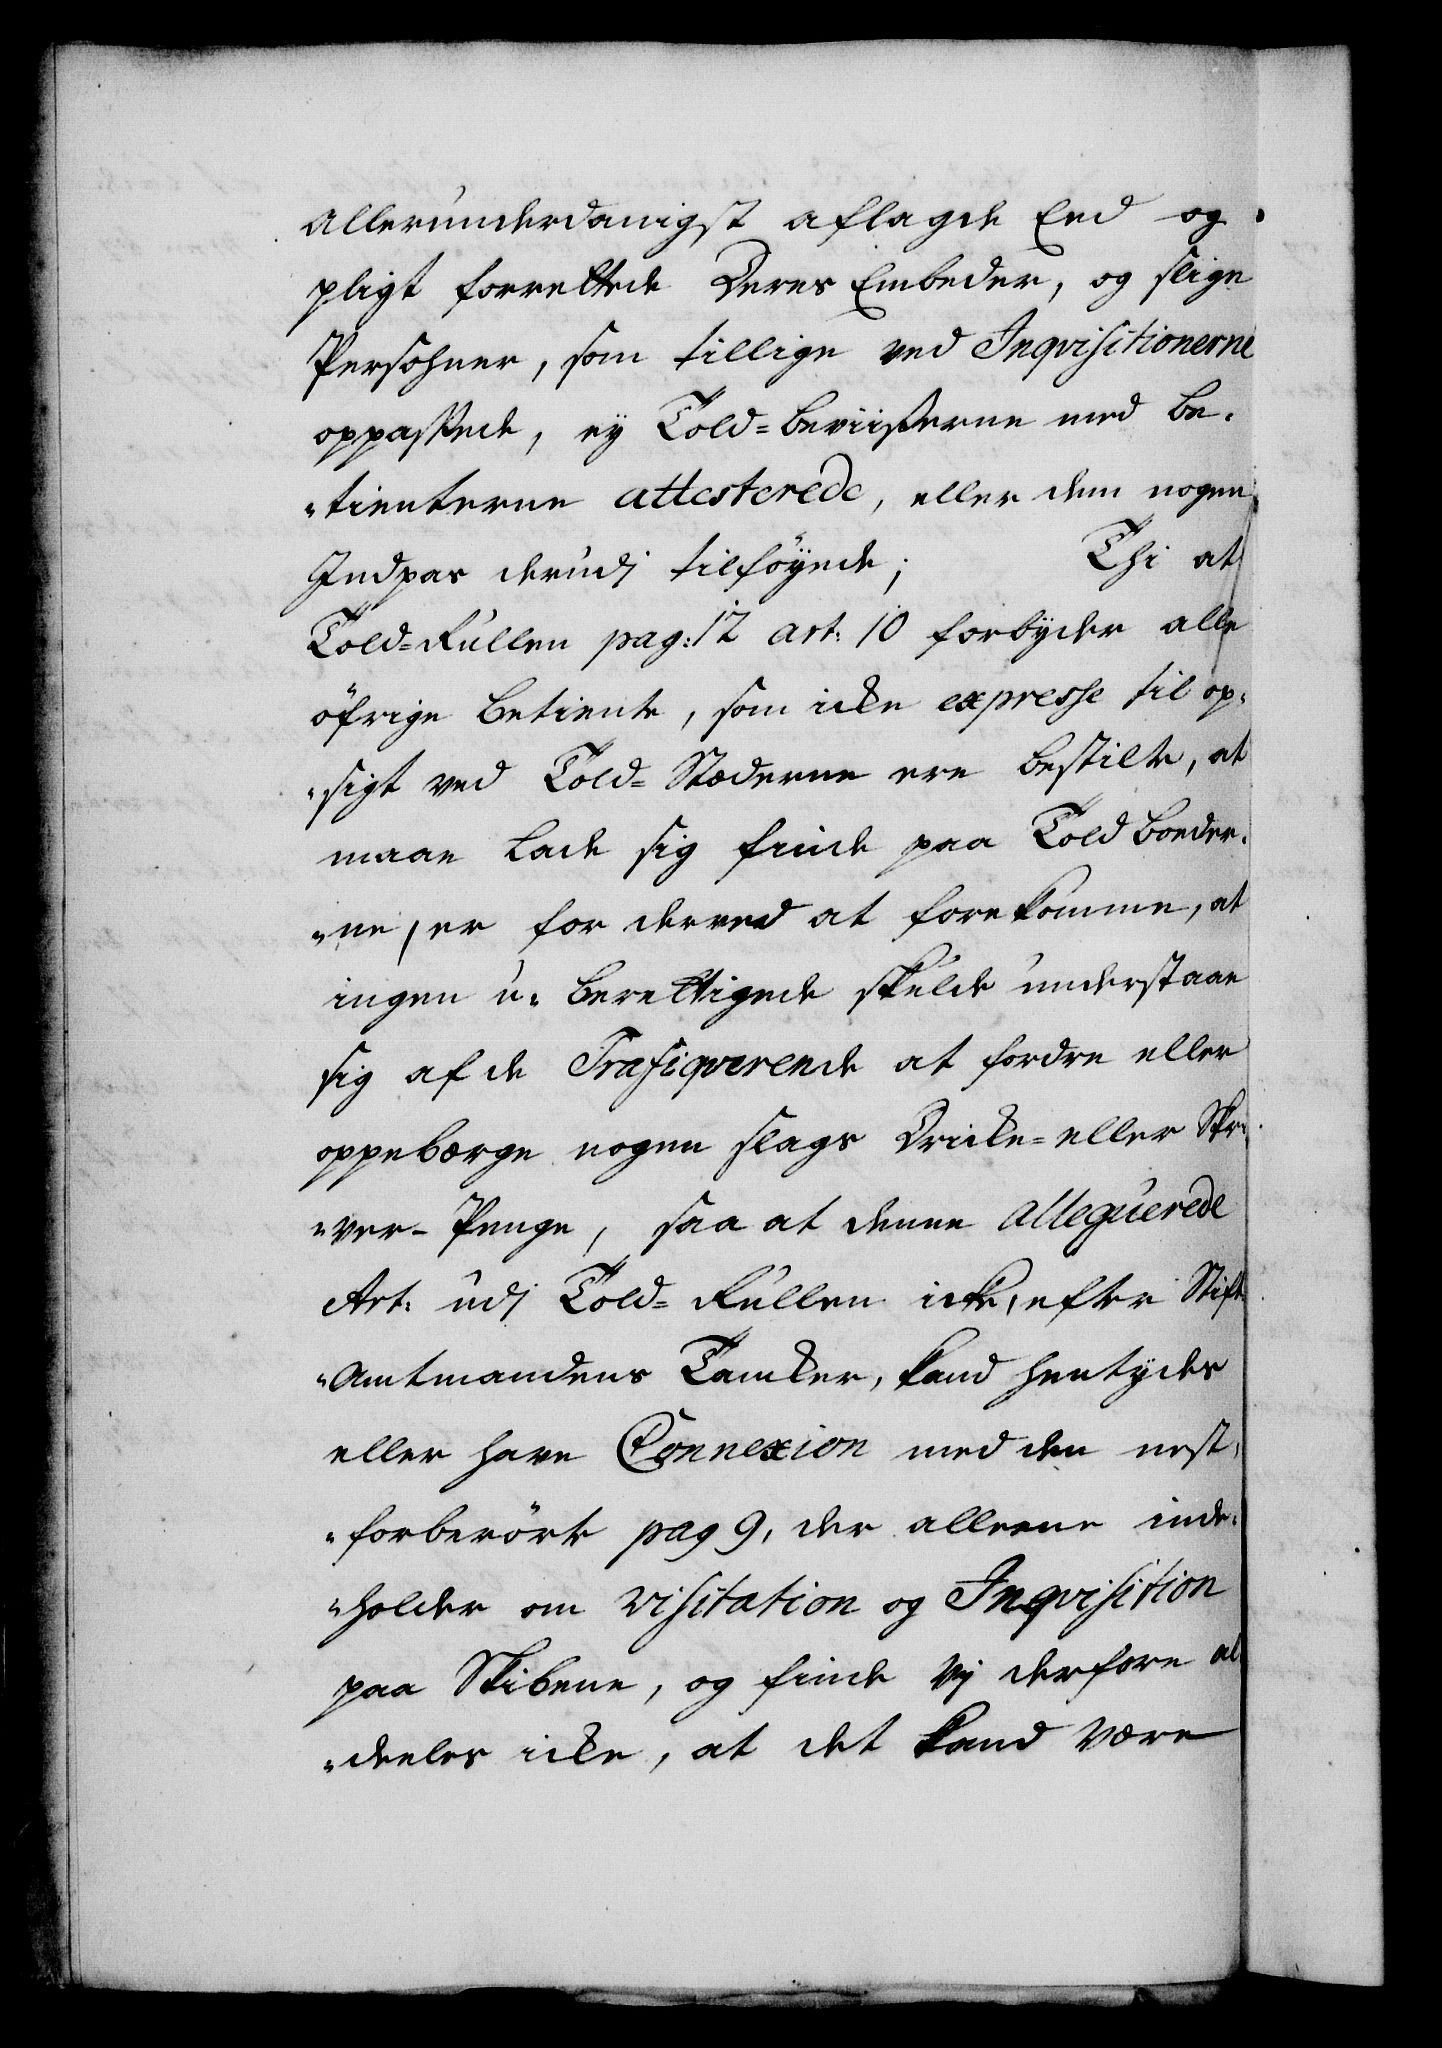 allerunderdanigst aflagde Eed og
pligt forrettede Deres Embeder, og slige
Persohner, som tillige ved Inqvisitionerne
oppassede, ey Told-Beviiserne med Be-
tienterne attesterede, eller dem nogen
Indpas derudj tilföyede; Thi at
Told-Rullen pag: 12 art: 10 forbyder alle
öfrige Betiente, som icke expresse til op-
sigt ved Told-Stæderne ere bestilte, at
maae lade sig finde paa Told Boeder-
ne, er for derved at forekomme, at
ingen u-berettigede skulde understaae
sig af de Trafiqverende at fordre eller
oppebærge nogen slags Dricke- eller Skri-
ver-Penge, saa at denne alleguerede
Art: udj Told-Rullen icke, efter Stift
Amtmandens Tancker, kand hentydes
eller have Connexion med den nest-
forberörte pag 9, der alleene inde-
holder om Visitation og Inqvisition
paa Skibene, og finde Vj derfore al
deeles icke, at det kand være